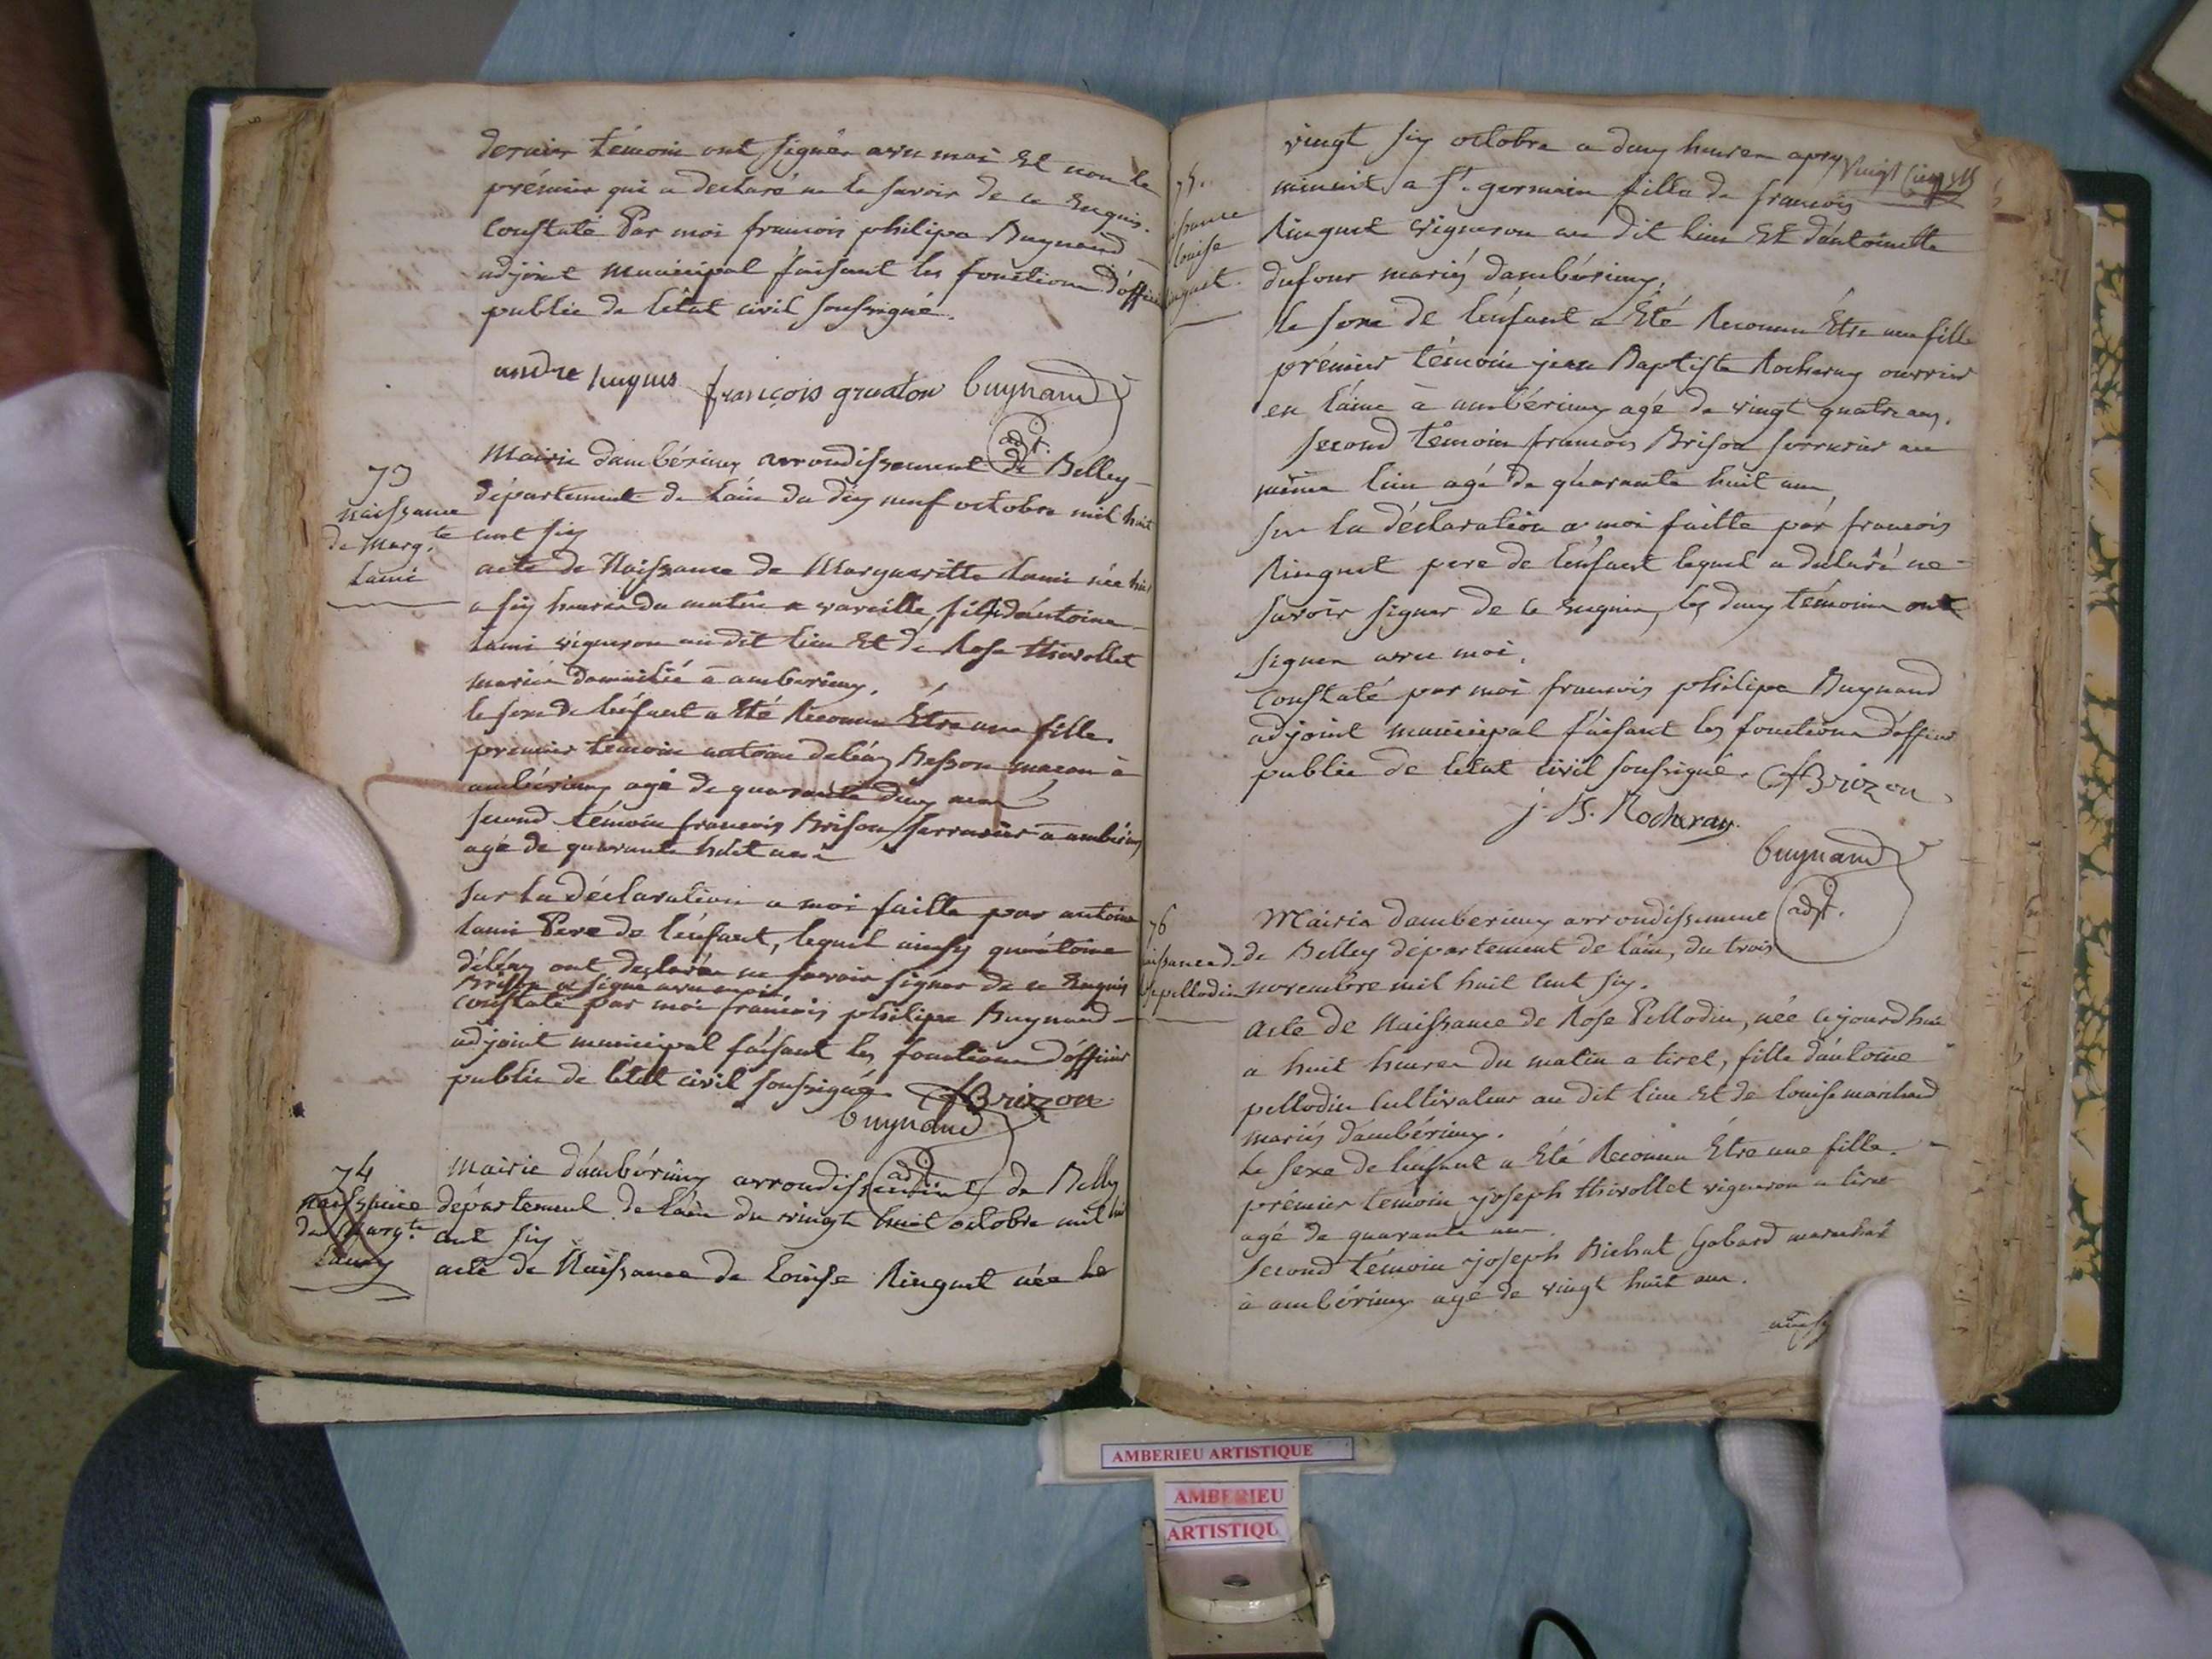 dernier témoin ont signés avec moi Et non le
prémier qui a declaré ne le savoir de ce Enquis.
Constaté Par moi francois philipe Buynand
adjoint municipal faisant les fonctions d'officier
public de l'état civil soussigné.
andre hugues françois gradton buynand
adjt.
73
naissance
de Marg.te
Lami
Mairie dambérieux arrondissement de Belley
département de Lain du dix neuf octobre mil huit
cent six
acte de Naissance de Margueritte Lami née hier
a six heures du matin a vareille, fille d'antoine
Lami vigneron au dit lieu Et de Rose thivollet
mariés domicilié à amberieux.
le sexe de lenfant a Eté Reconnu Être une fille.
premier témoin antoine deléaz Besson macon à
ambérieux agé de quarante deux ans
second témoin francois Brison serrurier à ambérieux
agé de quarante huit ans
sur la déclaration a moi faitte par antoine
Lami Pere de l'enfant, lequel ainsy qu'antoine
déléaz ont declarés ne savoir signer de ce Enquis
Brison a signé avec moi
constaté par moi francois philipe Buynand
adjoint municipal faisant les fonctions d'officier
public de l'état civil soussigné
fBrizon
buynand
adjt
74
naissance
de Marg.te
Lamy
Mairie d'ambérieux arrondissement de Belley
département de Lain du vingt huit octobre mil huit
cent six
acte de Naissance de Louise Ringuet née le
75.
issance
Louise
inguet.
vingt six octobre a deux heures apres
vingt cinq
minuit a St. germain fille de francois
Ringuet vigneron au dit lieu Et d'antoinette
dufour mariés dambérieux.
le sexe de l'enfant a Eté Reconnu Être une fille
prémier témoin jean Baptiste Rocheray ouvrier
en laine à ambérieux agé de vingt quatre ans.
second témoin francois Brison serrurier au
même lieu agé de quarante huit ans
sur la déclaration a moi faitte par francois
Ringuet pere de l'enfant lequel a declaré ne
savoir signer de ce Enquis, les deux témoins ont
signer avec moi.
Constaté par moi francois philipe Buynand
adjoint municipal faisant les fonctions d'officier
public de l'etat civil soussigné. fBrizon
j. B. Rocheray.
buynand
adjt.
76
aissance de
Rose pellodin
Mairie damberieux arrondissement
de Belley département de lain, du trois
novembre mil huit cent six.
Acte de Naissance de Rose Pellodin, née cejourdhui
a huit heures du matin a tiret, fille d'antoine
pellodin Cultivateur au dit lieu Et de louise marchand
mariés d'ambérieux.
le sexe de l'enfant a Eté Reconnu Être une fille.
prémier temoin joseph thivollet vigneron a tiret
agé de quarante ans.
second témoin joseph Bichat Gobard marechal
à ambérieux agé de vingt huit ans.
AMBERIEU ARTISTIQUE
AMBERIEU
ARTISTIQU